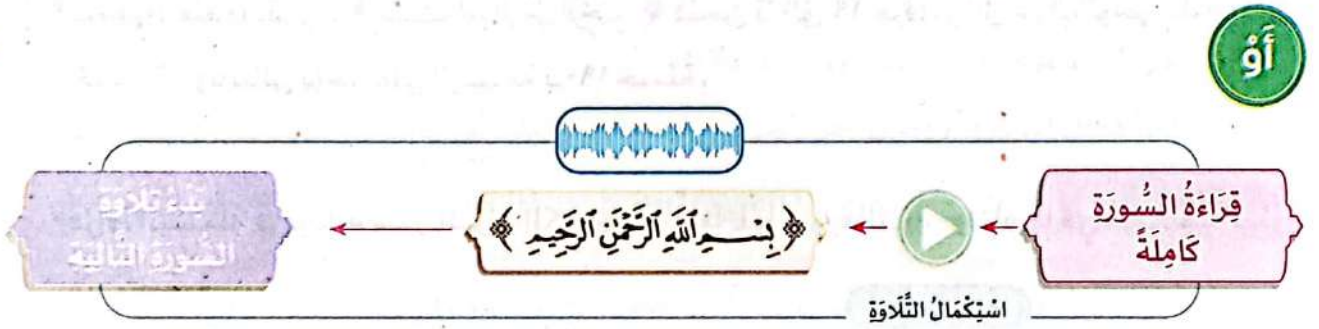 أَوْ
قِرَاءَةُ السُّورَةِ
كَامِلَةً
﴿ بِسْمِ ٱللَّهِ ٱلرَّحْمَٰنِ ٱلرَّحِيمِ ﴾
بَدْءُ تِلَاوَةِ
السُّورَةِ التَّالِيَةِ
اسْتِكْمَالُ التِّلَاوَةِ